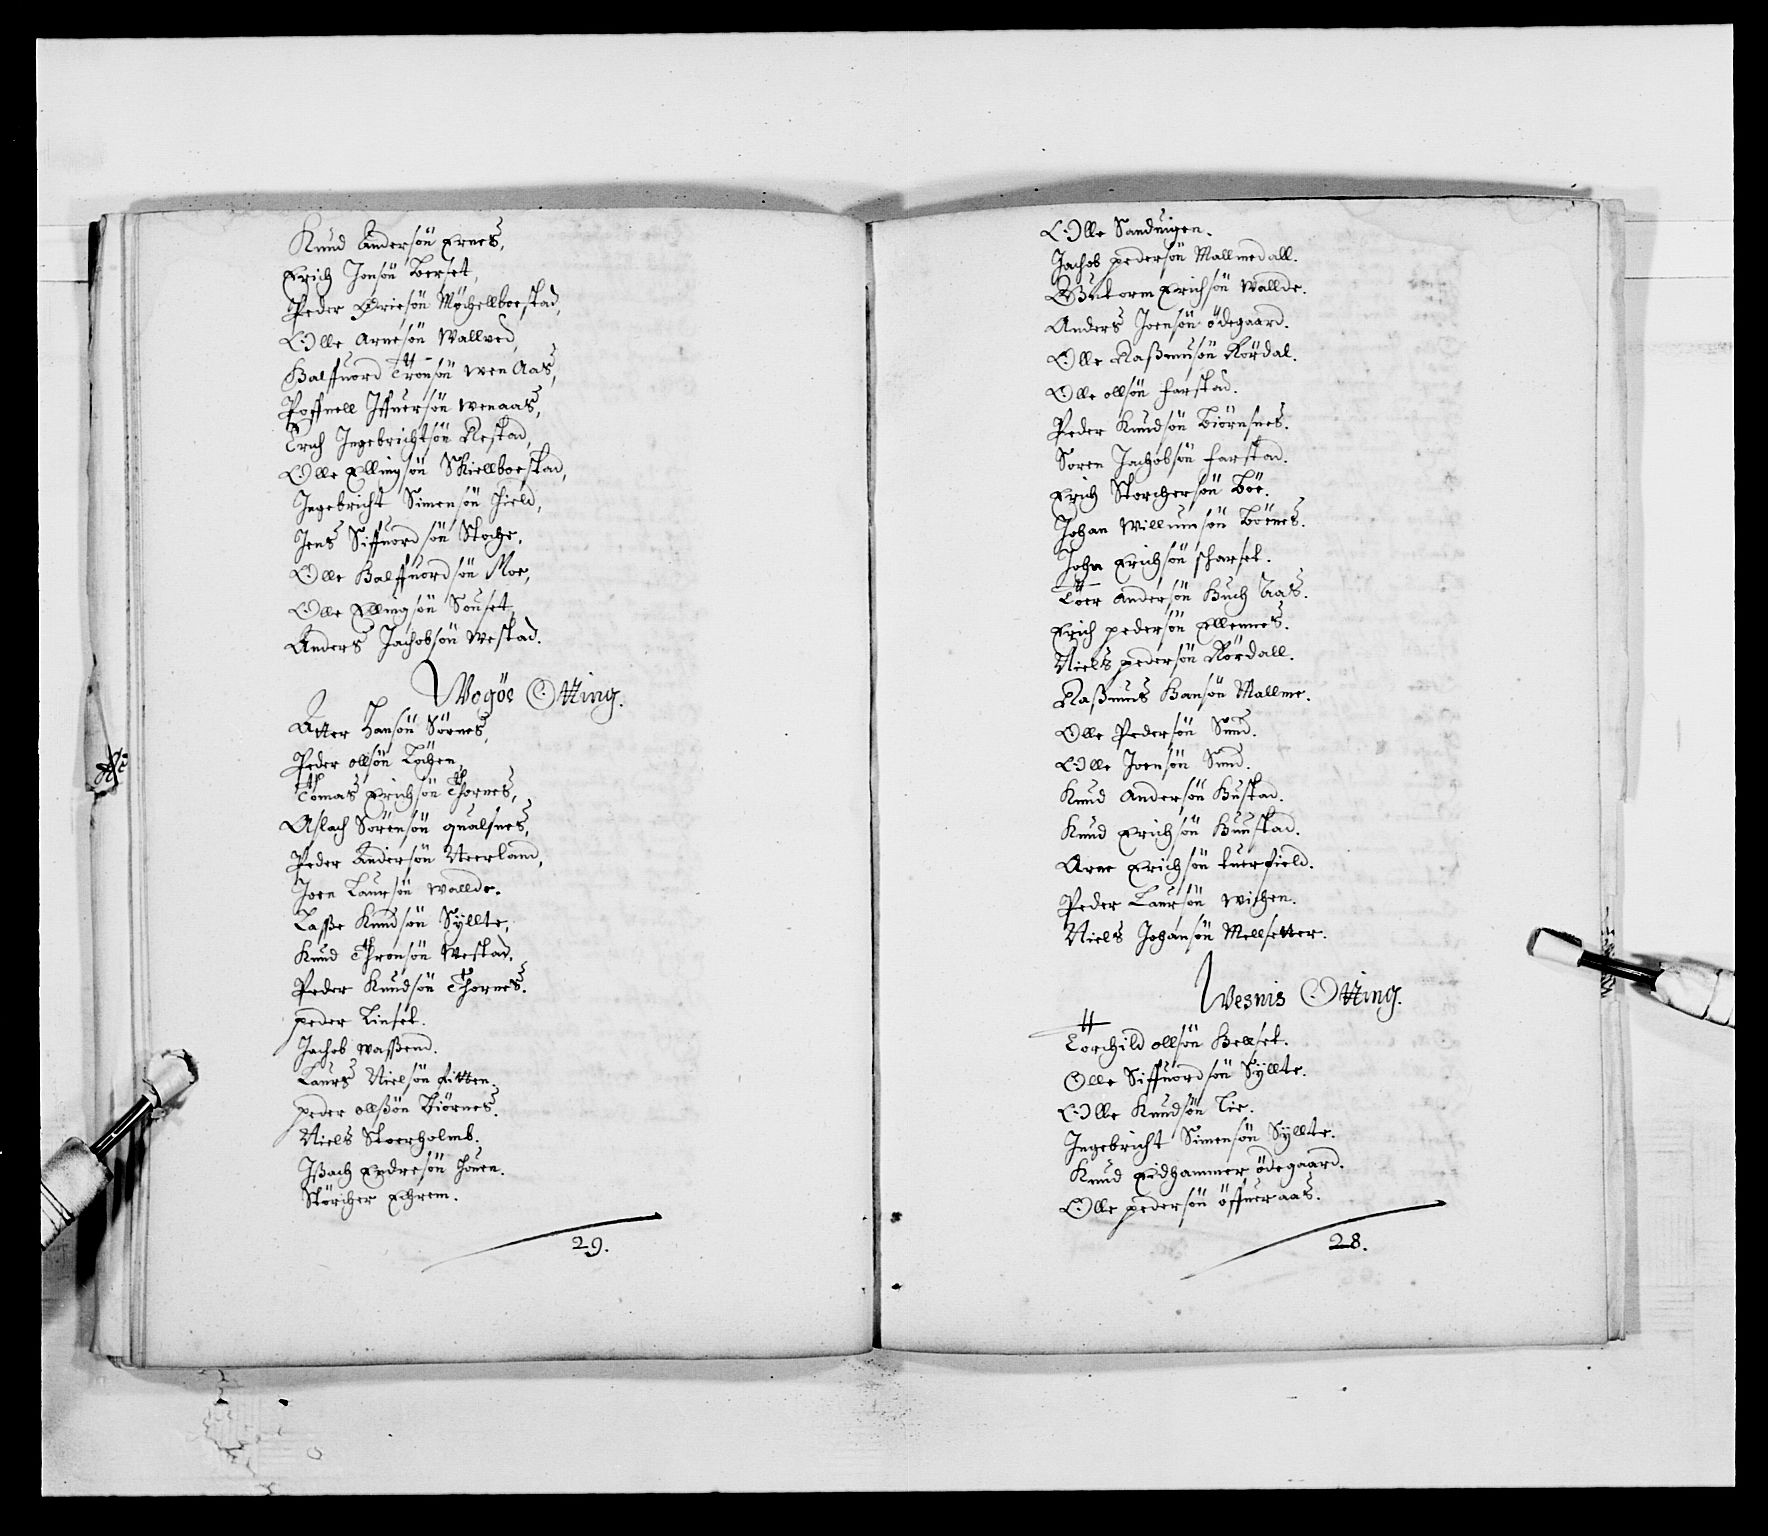 Knud Andersön Ernes,
Erich Jonsön Berset,
Peder Ericsön Möchellboestad,
Olle Arnesön Wallved,
Halffuord Tronsön wen Aas,
Poffuell Iffuersön wenaas,
Erich Ingebrichtsön Restad,
Olle Ellingsön Skiellboestad,
Ingebricht Simensön Hield,
Jens Siffuordsön Stoche,
Olle Halffuordsön Moe,
Olle Ellingsön Souset,
Anders Jachobsön Westad.
Wogöe Otting.
Atter Hansön Sörnes,
Peder ollsön Löchen,
Tomas Erichsön Thornes,
Aslach Sörensön qualsnes,
Peder Andersön Neerland,
Joen Laursön wallde.
Lasse Knudsön Syllte,
Knud Thronsön Westad,
Peder Knudsön Thornes.
peder Linset.
Jachob wassend.
Laurs Nielsön Fitten.
peder ollsön Biörnes.
Niels Stoerholmb.
Issach Endresön Houen.
Störcher Echrem.
29.
Olle Sanduigen.
Jachob pedersön Mallmedall.
Guttorm Erichsön Wallde.
Anders Joensön ödegaard.
Olle Rasmusön Rördal.
Olle ollsön farstad.
Peder Knudsön Biörnsnes.
Soren Jachobsön farstad.
Erich Storchersön Böe.
Johan Willumsön Börnes.
John Erichsön skarset.
Töer Andersön Buch Aas.
Erich pedersön Ellennes.
Niels pedersön Rördall.
Rasmus Hansön Mallme.
Olle Pedersön Sund.
Olle Joensön Sund.
Knud Andersön Bustad.
Knud Erichsön Buustad.
Arne Erichsön tuerfield.
Peder Laursön wichen.
Niels Johansön Mellsetter.
Wesnis Otting.
Torchild ollsön Hellset.
Olle Siffuordsön Syllte.
Olle Knudsön Lie.
Ingebricht Simensön Syllte.
Knud Eidhammer ödegaard.
Olle pedersön öffueraas.
28.